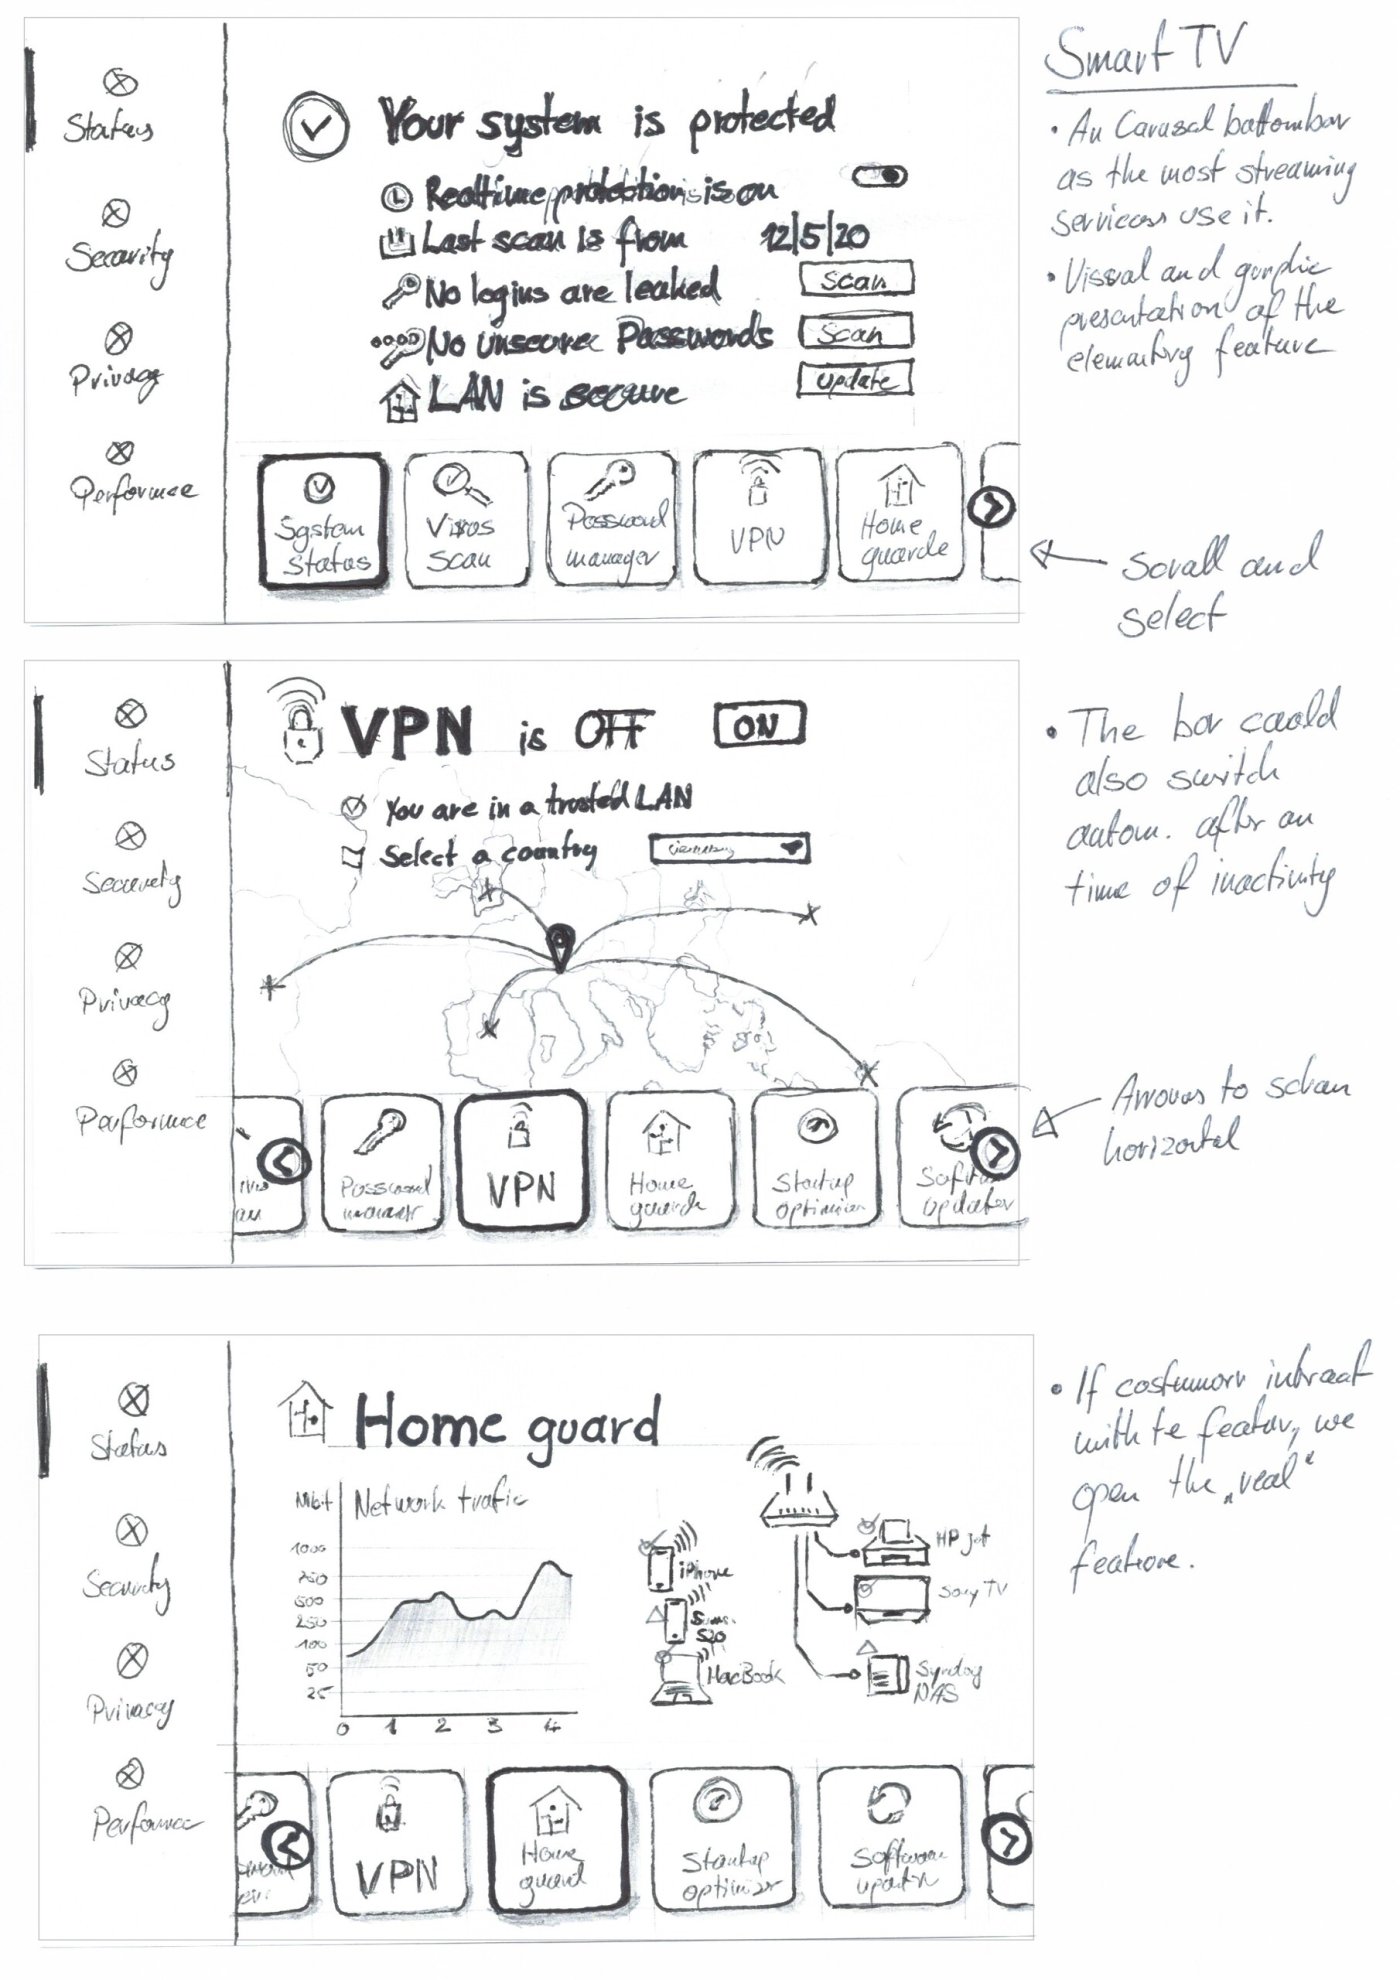 Status
Security
Privacy
Performce
Your system is protected
Realtime protection is on
Last scan is from 12|5|20
No logins are leaked Scan
No unsecure Passwords Scan
LAN is secure update
System
Status
Virus
Scan
Password
manager
VPN
Home
guarde
Smart TV
• An Carusal bottombar
as the most streaming
services use it.
• Visual and graphic
presentation of the
elementary feature
Scrall and
select
Status
Security
Privacy
Performce
VPN is OFF ON
You are in a trusted LAN
Select a country Germany
Password
VPN
Home
guarde
Startup
optimizer
Software
updater
• The bar could
also switch
autom. after an
time of inactivity
Arrows to
horizontal
Status
Security
Privacy
Performce
Home guard
Mbit Network trafic
1000
750
500
250
100
50
25
0 1 2 3 4
iPhone
S20
MacBook
HP jet
Sony TV
Synology
NAS
VPN
Home
guard
Startup
optimizer
Software
• If interact
with te featur, we
open the „real“
feature.